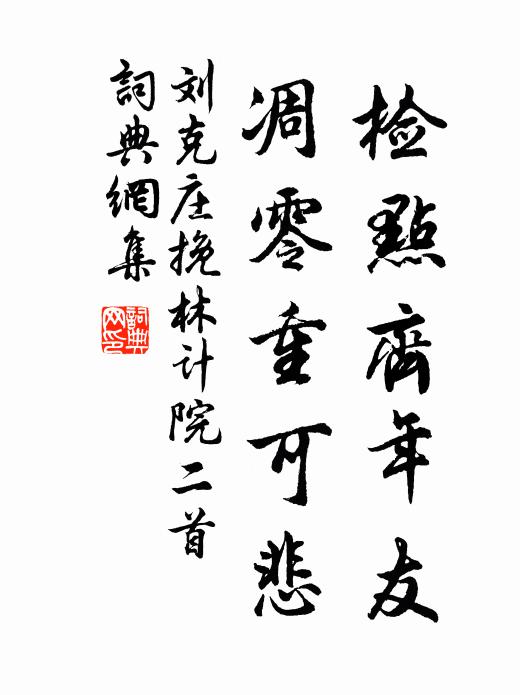 检點齊年友
凋零重可悲
刘克庄挽林计院二首
詞典網集
詞典网印